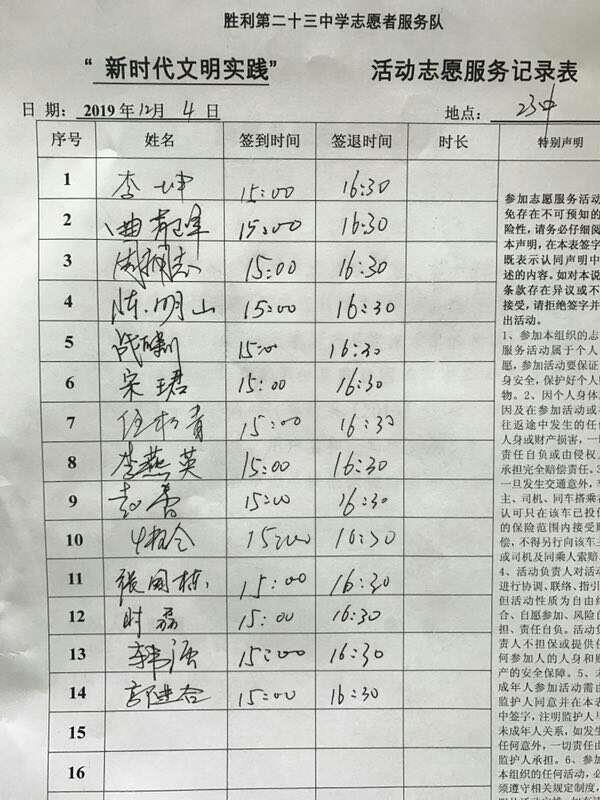 胜利第二十三中学志愿者服务队
“新时代文明实践” 活动志愿服务记录表
日 期: 2019 年 12 月 4 日 地点: 23中
序号 姓名 签到时间 签退时间 时长 特别声明
1 李坤 15:00 16:30
2 曲 15:00 16:30
3 周 志 15:00 16:30
4 陈明山 15:00 16:30
5 15:00 16:30
6 宋珺 15:00 16:30
7 任 青 15:00 16:30
8 李燕英 15:00 16:30
9 15:00 16:30
10 15:00 16:30
11 张国栋 15:00 16:30
12 时磊 15:00 16:30
13 韩 15:00 16:30
14 郭建合 15:00 16:30
15
16
参加志愿服务活动
免存在不可预知的
险性,请务必仔细阅
本声明,在本表签字
既表示认同声明中
述的内容。如对本说
条款存在异议或不
接受,请拒绝签字并
出活动。
1、参加本组织的志
服务活动属于个人
愿,参加活动要保证
身安全,保护好个人
物。2、因个人身体
因及在参加活动或
往返途中发生的任
人身或财产损害,一
责任自负或由侵权
承担完全赔偿责任。3
一旦发生交通意外,
主、司机、同车搭乘
认可只在该车已投
的保险范围内接受
偿,不得另行向该车
或司机及同乘人索赔
4、活动负责人对活动
进行协调、联络、指引
但活动性质为自由
合、自愿参加、风险
担、责任自负。活动
责人不担保或提供
何参加人的人身和
产的安全保障。5、未
成年人参加活动需
监护人同意并在本表
中签字,注明监护人
未成年人关系,如发
任何意外,一切责任由
监护人承担。6、参加
本组织的任何活动,必
须遵守相关规定制度,